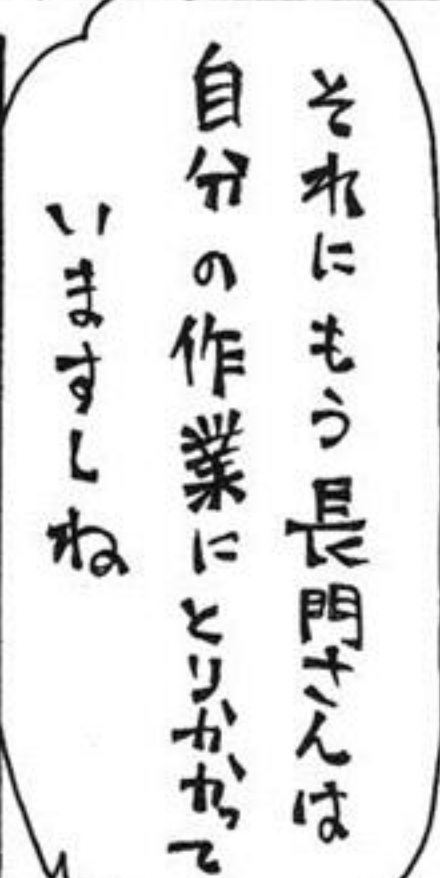 それにもう長門さんは
自分の作業にとりかかって
いますしね